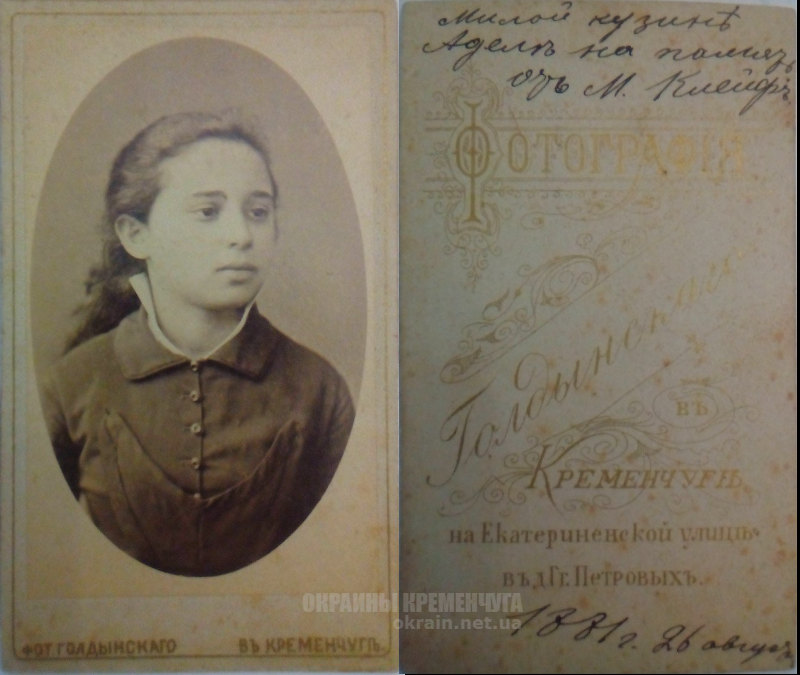 ФОТ. ГОЛДЫНСКАГО ВЪ КРЕМЕНЧУГѢ.
Милой кузинѣ
Аделѣ на память
отъ М. Клейфъ
ФОТОГРАФІЯ
Голдынскаго
ВЪ
КРЕМЕНЧУГѢ
на Екатериненской улицѣ
въ д. Гг. Петровыхъ.
1881 г. 26 август
ОКРАИНЫ КРЕМЕНЧУГА
okrain.net.ua